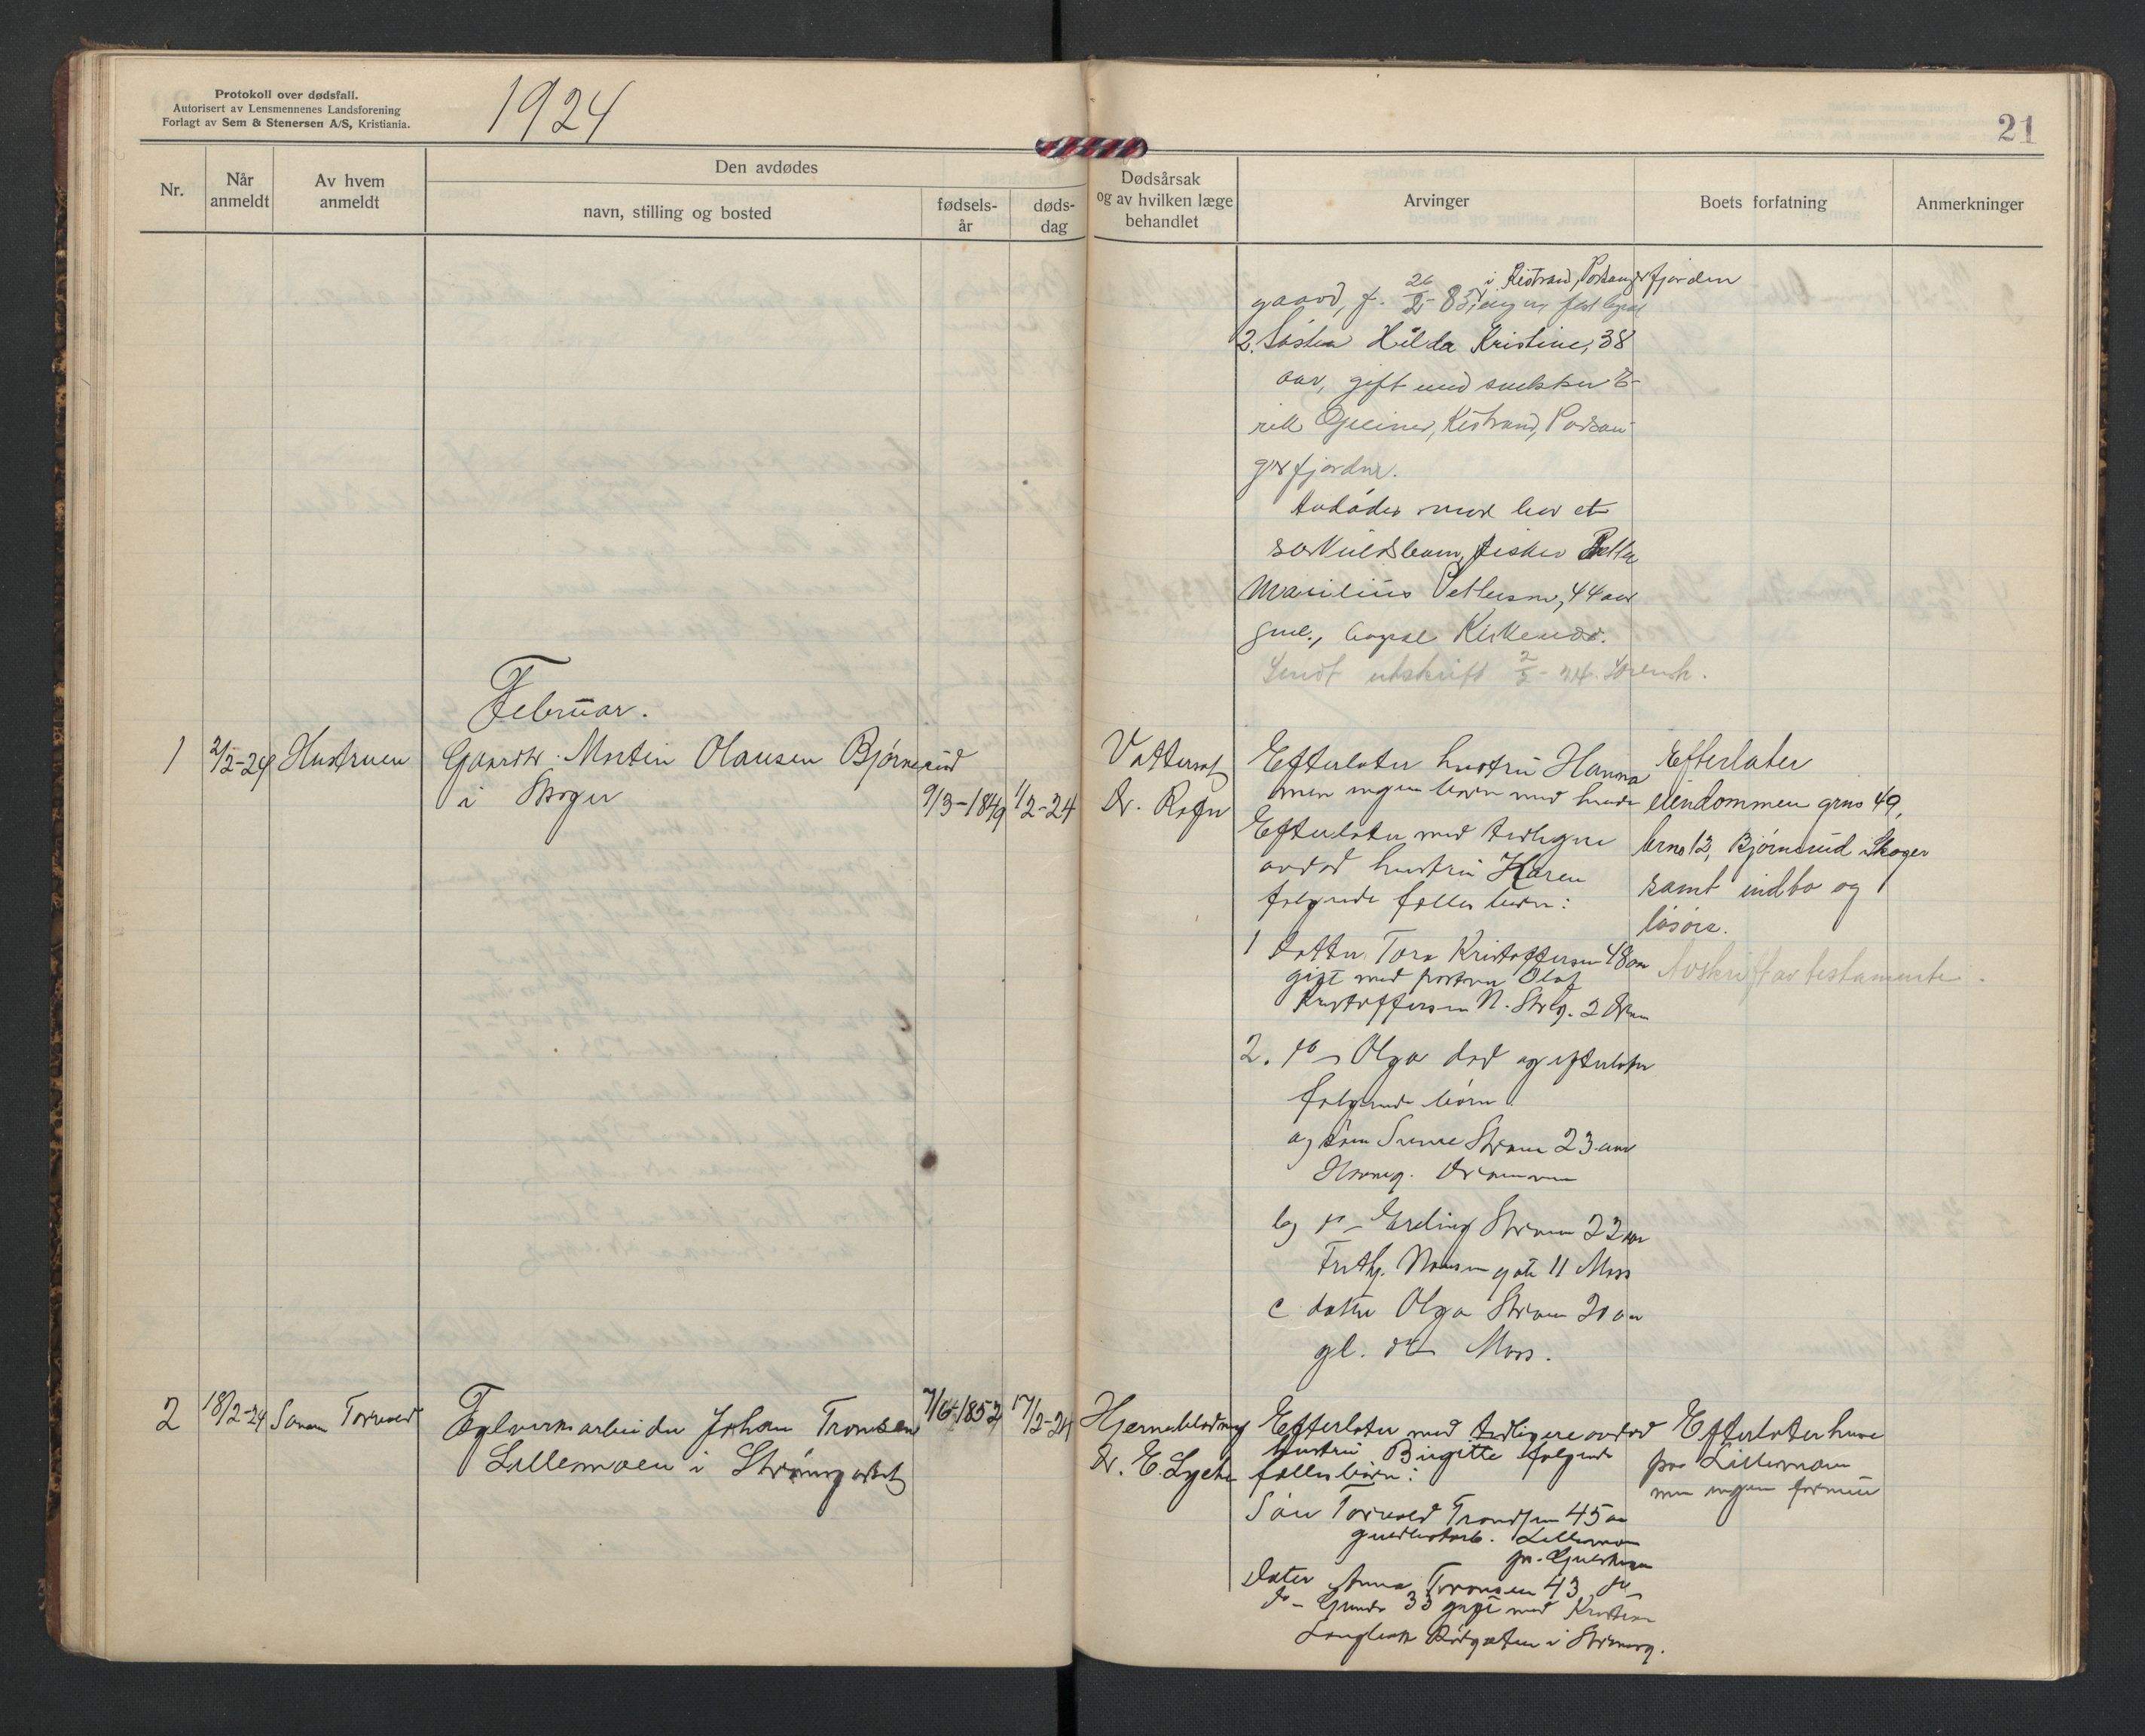 Protokoll over dødsfall.
Autorisert av Lensmennenes Landsforening
Forlagt av Sem & Stenersen A/S, Kristiania.
1924
21
Nr.
Når anmeldt
Av hvem anmeldt
Den avdødes
navn, stilling og bosted
fødsels-år
døds-dag
Dødsårsak og av hvilken læge behandlet
Arvinger
Boets forfatning
Anmerkninger
i Kistrand, Porsangerfjorden
gaard, f. 85, ingen fast bopæl
2. Søster Hilda Kristine, 38
aar, gift med snekker E-
rik Kistrand, Porsan-
gerfjorden.
Avdødes mor har et
særkuldsbarn, fisker Petter
Marilius Pettersen, 44 aar
gml., bopæl Kirkenæs.
Sendt utskrift 24
Februar.
1
2/2-24
Hustruen
Gaardbr. Martin Olausen Bjørnerud
i Skoger
9/3-1849
1/2-24
Vattersot
Dr. Rafn
Efterlater hustru Hanna
men ingen børn med hende
Efterlater med tidligere
avdød hustru Karen
følgende fælles børn:
1 datter Tora Kristoffersen 48 aar
gift med Olaf
Kristoffersen N. Strg. 2 Dram
2. do Olga død og efterlater
følgende børn
a) søn Strøm 23 aar
Drammen
b) do Erling Strøm 22 aar
Fritjh. Nansen gate 11 Moss
c datter Olga Strøm 20 aar
gl. do Moss.
Efterlater
eiendommen grno 49,
brno 12, Bjørnerud i Skoger
samt indbo og
løsøre.
Avskrift av testamente.
2
18/2-24
Sønnen Torvald
Teglverksarbeider Johan Tronsen
Lillemoen i Strømsgodset
1852
17/2-24
Hjerneblødning
Dr. E. Lyche
Efterlater med tidligere avdød
hustru Birgitte følgende
fælles børn:
Søn Torvald Trondsen 45 aar
Lillemoen
Datter Anna Tronsen 43 do
do 33 gift med Kristian
i Strømsg.
Efterlater hus
paa Lillemoen
men ingen formue